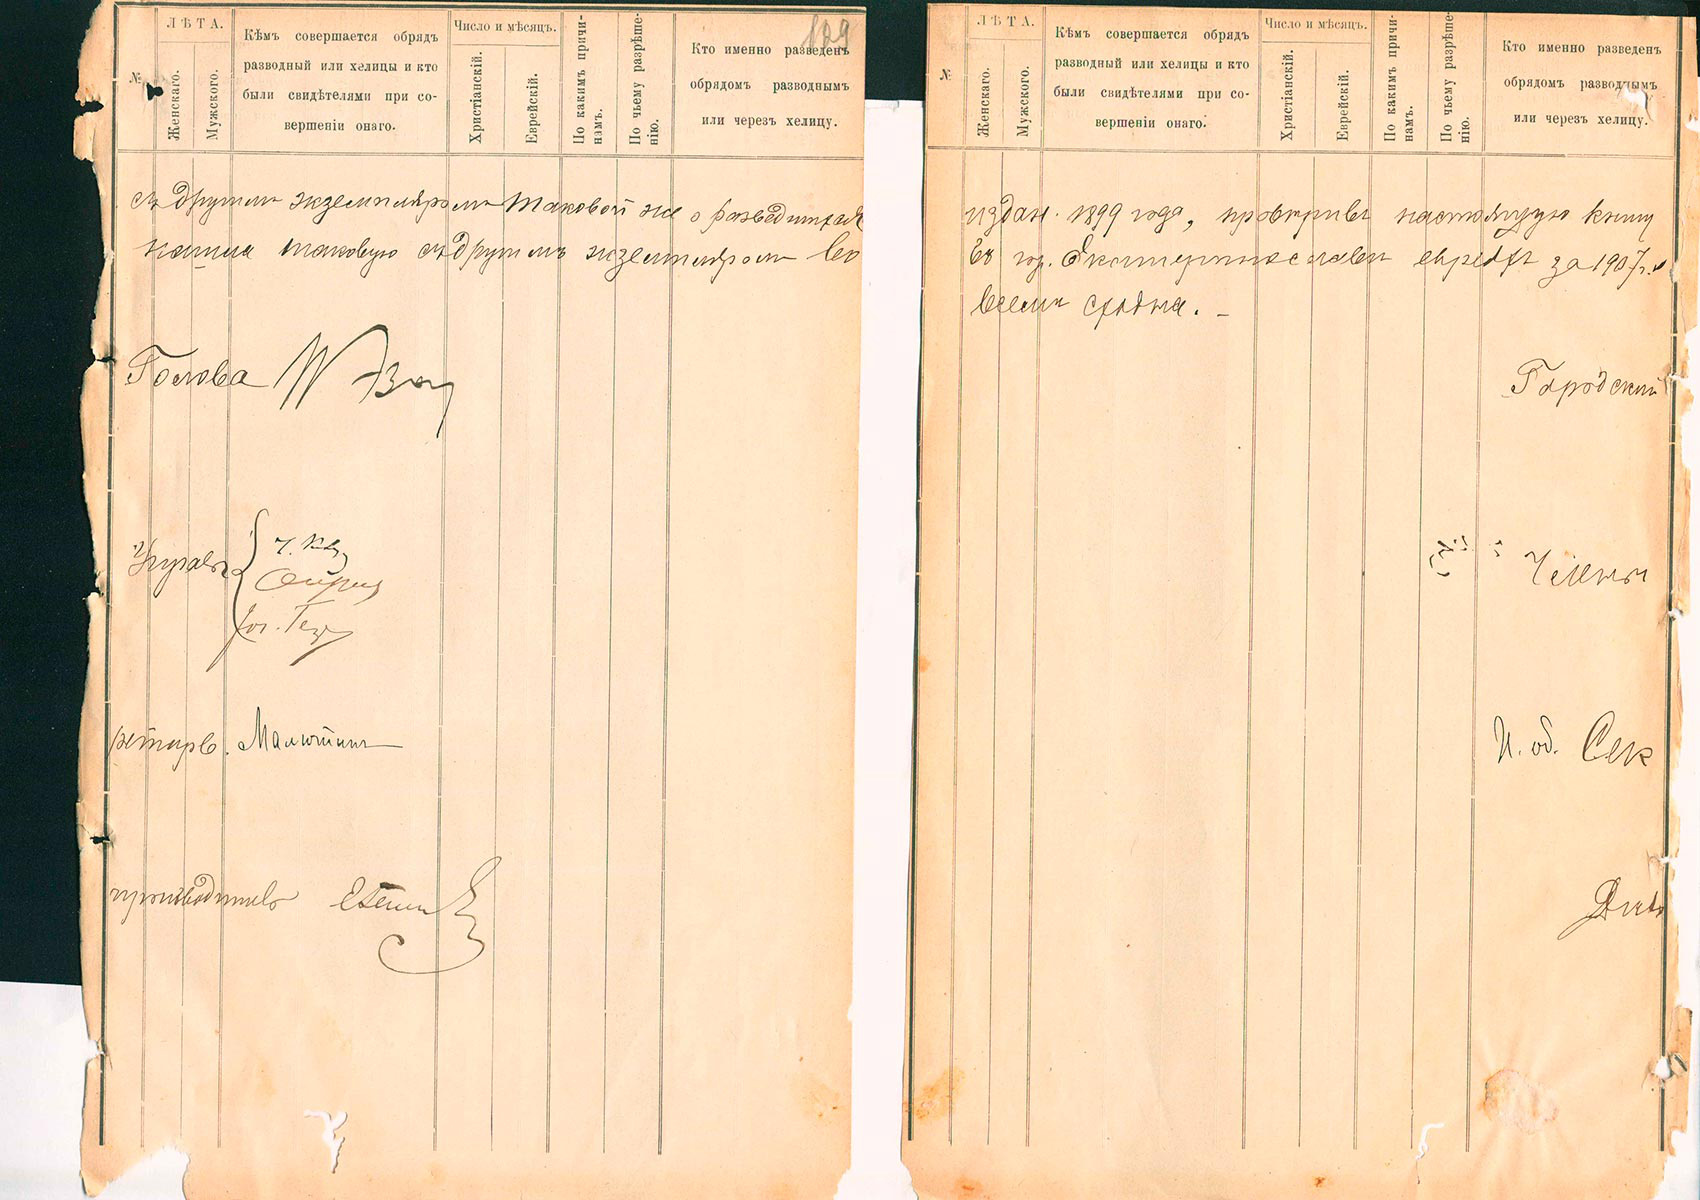 129
№
ЛѢТА.
Женскаго.
Мужского.
Кѣмъ совершается обрядъ
разводный или хелицы и кто
были свидѣтелями при со-
вершеніи онаго.
Число и мѣсяцъ.
Христіанскій.
Еврейскій.
По какимъ причи-
намъ.
По чьему разрѣше-
нію.
Кто именно разведенъ
обрядомъ разводнымъ
или черезъ хелицу.
съ другимъ экземпляромъ таковой же о
таковую съ другимъ экземпляромъ во
Голова
Управы
Ч.
ретарь. Малютинъ
производитель
№
ЛѢТА.
Женскаго.
Мужского.
Кѣмъ совершается обрядъ
разводный или хелицы и кто
были свидѣтелями при со-
вершеніи онаго.
Число и мѣсяцъ.
Христіанскій.
Еврейскій.
По какимъ причи-
намъ.
По чьему разрѣше-
нію.
Кто именно разведенъ
обрядомъ разводнымъ
или черезъ хелицу.
издан. 1899 года, провѣривъ настоящую книгу
гор. евреевъ за 1907 г.
всемъ сходна. –
Городской
Члены
И. об. Сек